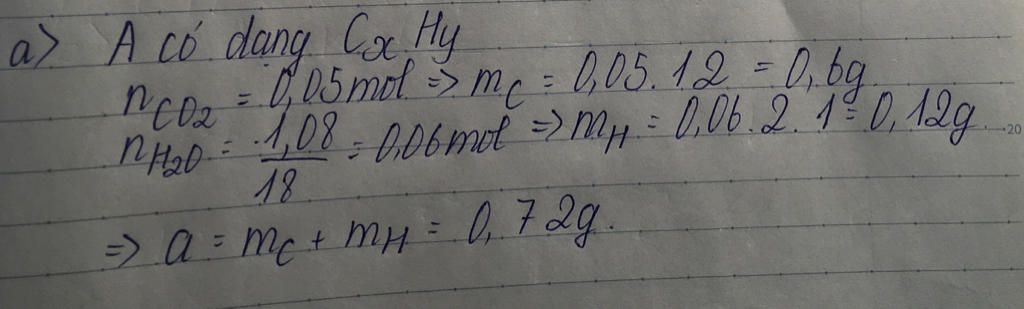 a> A có dạng CxHy
nCO2 = 0,05mol => mC = 0,05.12 = 0,6g
nH2O = 1,08/18 = 0,06mol => mH = 0,06.2.1 = 0,12g
20
=> a = mC + mH = 0,72g.